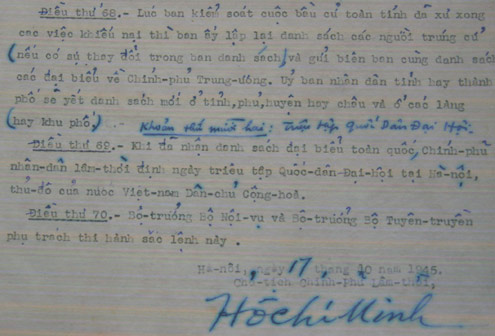 Điều thứ 68.- Lúc ban kiểm soát cuộc bầu cử toàn tỉnh đã xử xong
các việc khiếu nại thì ban ấy lập lại danh sách các người trúng cử
(nếu có sự thay đổi trong bản danh sách) và gửi biên bản cùng danh sách
các đại biểu về Chính-phủ Trung-ương. Uỷ ban nhân dân tỉnh hay thành
phố sẽ yết danh sách mới ở tỉnh, phủ, huyện hay châu và ở các làng
(hay khu phố.) .- Khoản thứ mười hai: Triệu tập Quốc Dân Đại Hội.
Điều thứ 69.- Khi đã nhận danh sách đại biểu toàn quốc, Chính-phủ
nhân-dân lâm-thời định ngày triệu tập Quốc-dân-Đại-hội tại Hà-nội,
thủ-đô của nước Việt-nam Dân-chủ Cộng-hoà.
Điều thứ 70.- Bộ-trưởng Bộ Nội-vụ và Bộ-trưởng Bộ Tuyên-truyền
phụ trách thi hành sắc lệnh này .
Hà-nội, ngày 17 tháng 10 năm 1945.
Chủ-tịch Chính-Phủ Lâm-thời,
Hồ Chí Minh